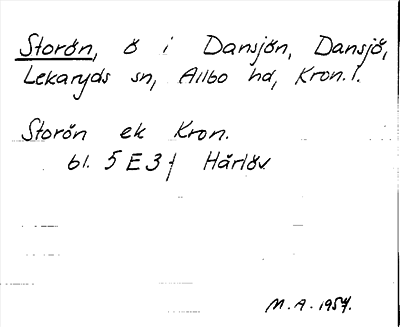 Storön, ö i Dansjön, Dansjö,
Lekaryds sn, Allbo hd, Kron. l.
Storön ek Kron.
bl. 5 E 3 f Härlöv
M. A. 1957.